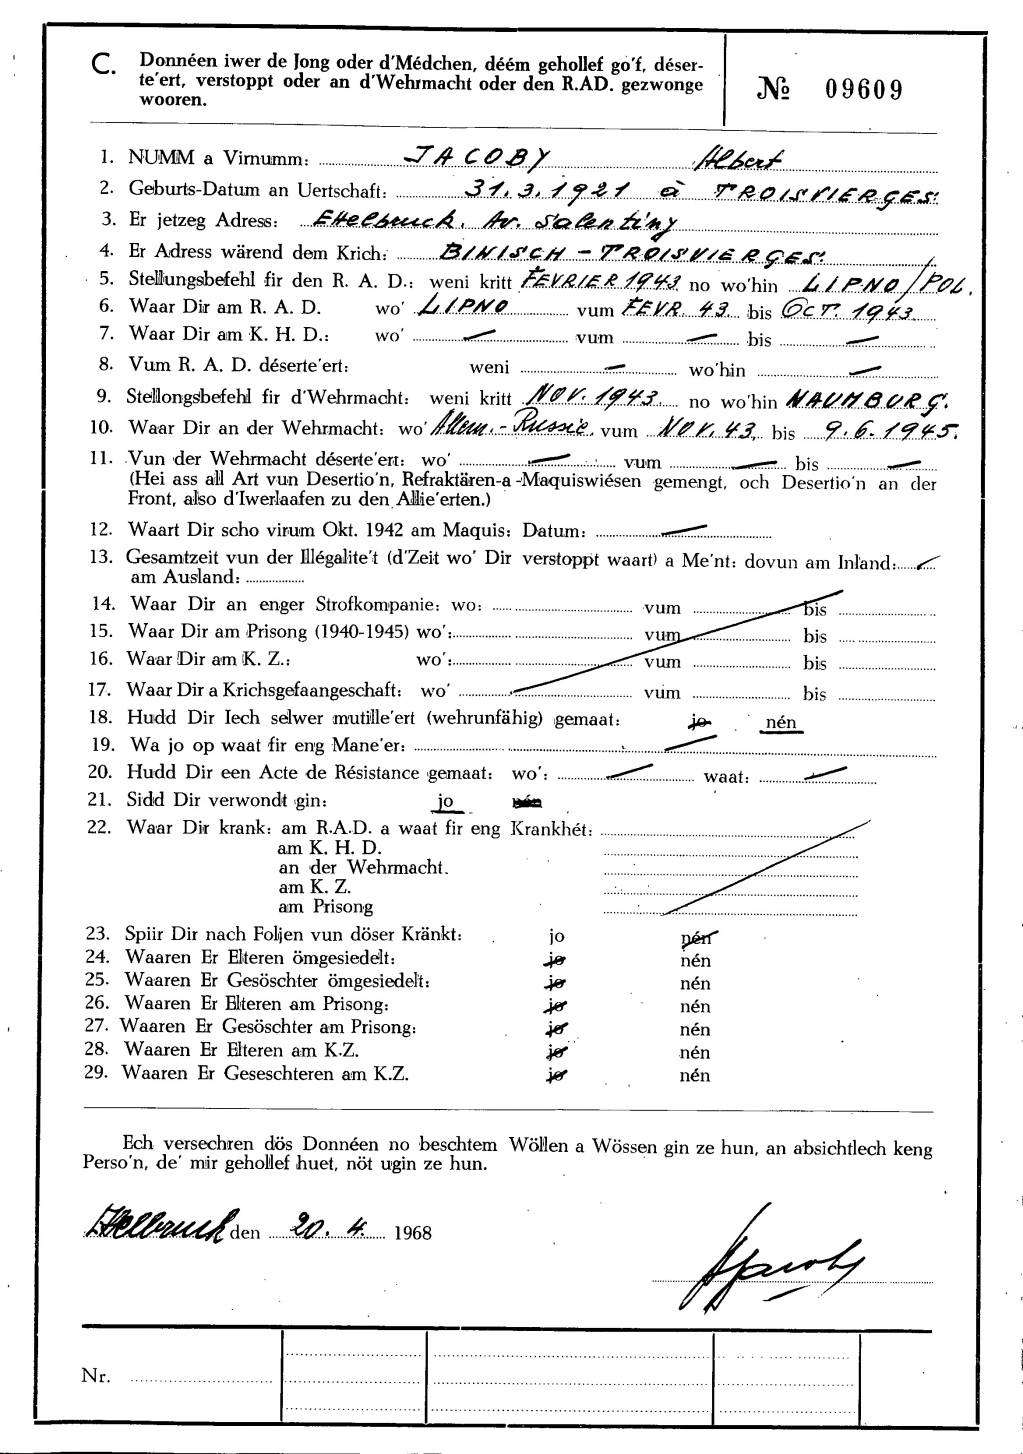 C. Donnéen iwer de Jong oder d'Médchen, déém gehollef go'f, déser-
te'ert, verstoppt oder an d'Wehrmacht oder den R.AD. gezwonge
wooren.
№ 09609
1. NUMM a Virnumm: JACOBY Albert
2. Geburts-Datum an Uertschaft: 31.3.1921 à TROISVIERGES
3. Er jetzeg Adress: Ettelbruck, Av. Salentiny
4. Er Adress wärend dem Krich: BINISCH - TROISVIERGES
5. Stellungsbefehl fir den R. A. D.: weni kritt FEVRIER 1943 no wo'hin LIPNO/POL.
6. Waar Dir am R. A. D. wo' LIPNO vum FEVR. 43 bis OCT. 1943
7. Waar Dir am K. H. D.: wo' — vum — bis —
8. Vum R. A. D. déserte'ert: weni — wo'hin —
9. Stellongsbefehl fir d'Wehrmacht: weni kritt NOV. 1943 no wo'hin NAUMBURG.
10. Waar Dir an der Wehrmacht: wo' Allem. - Russie vum NOV. 43 bis 9.6.1945.
11. Vun der Wehrmacht déserte'ert: wo' — vum — bis —
(Hei ass all Art vun Desertio'n, Refraktären-a-Maquiswiésen gemengt, och Desertio'n an der
Front, also d'Iwerlaafen zu den Allie'erten.)
12. Waart Dir scho virum Okt. 1942 am Maquis: Datum: —
13. Gesamtzeit vun der Illégalite't (d'Zeit wo' Dir verstoppt waart) a Me'nt: dovun am Inland: —
am Ausland:
14. Waar Dir an enger Strofkompanie: wo: vum bis
15. Waar Dir am Prisong (1940-1945) wo': vum bis
16. Waar Dir am K. Z.: wo': vum bis
17. Waar Dir a Krichsgefaangeschaft: wo' vum bis
18. Hudd Dir Iech selwer mutille'ert (wehrunfähig) gemaat: jo nén
19. Wa jo op waat fir eng Mane'er: —
20. Hudd Dir een Acte de Résistance gemaat: wo': — waat: —
21. Sidd Dir verwondt gin: jo nén
22. Waar Dir krank: am R.A.D. a waat fir eng Krankhét:
am K. H. D.
an der Wehrmacht.
am K. Z.
am Prisong
23. Spiir Dir nach Foljen vun döser Kränkt: jo nén
24. Waaren Er Elteren ömgesiedelt: jo nén
25. Waaren Er Gesöschter ömgesiedelt: jo nén
26. Waaren Er Elteren am Prisong: jo nén
27. Waaren Er Gesöschter am Prisong: jo nén
28. Waaren Er Elteren am K.Z. jo nén
29. Waaren Er Geseschteren am K.Z. jo nén
Ech versechren dös Donnéen no beschtem Wöllen a Wössen gin ze hun, an absichtlech keng
Perso'n, de' mir gehollef huet, nöt ugin ze hun.
Ettelbruck den 20. 4. 1968
AJacoby
Nr.